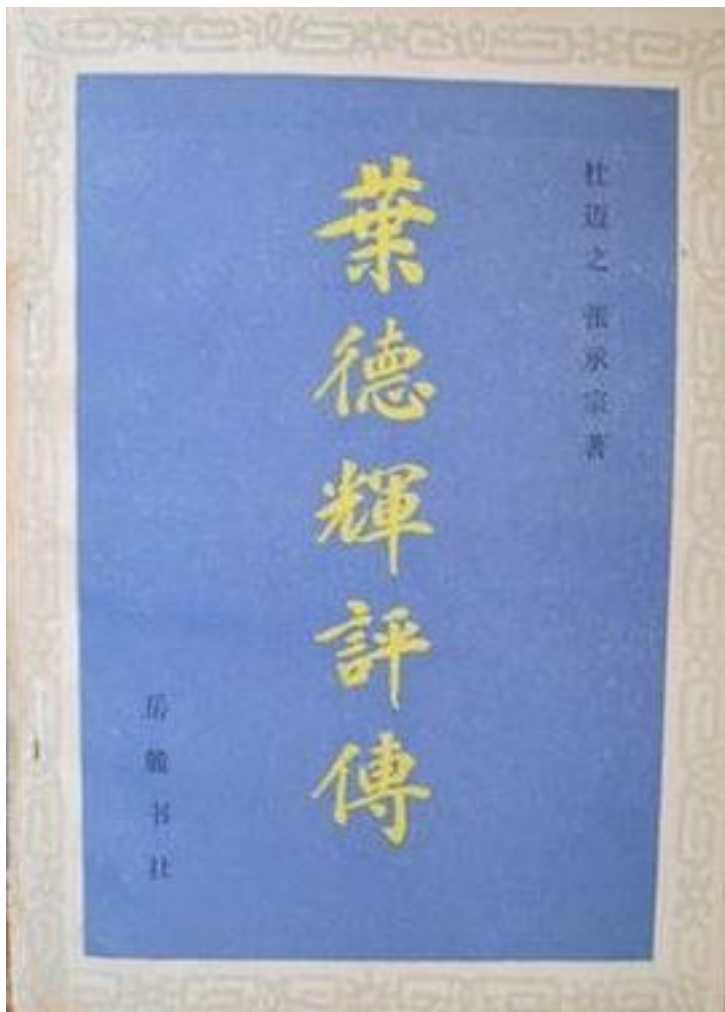 杜迈之 张承宗著
葉德輝評傳
岳麓书社